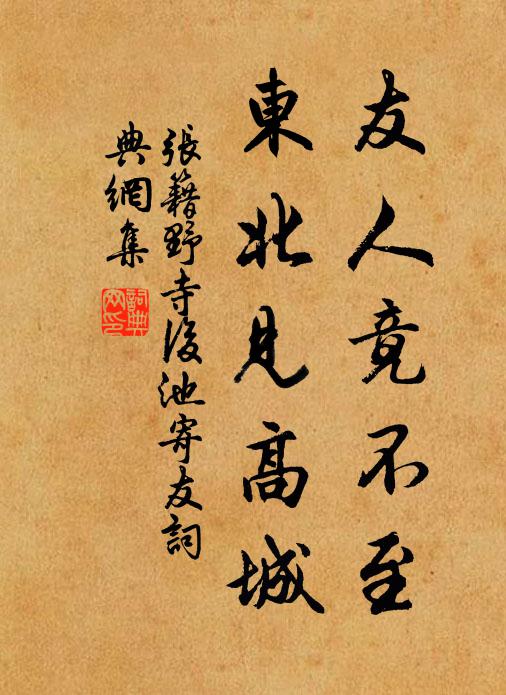 友人竟不至
東北見高城
張籍野寺後池寄友詞
典網集
詞典網印